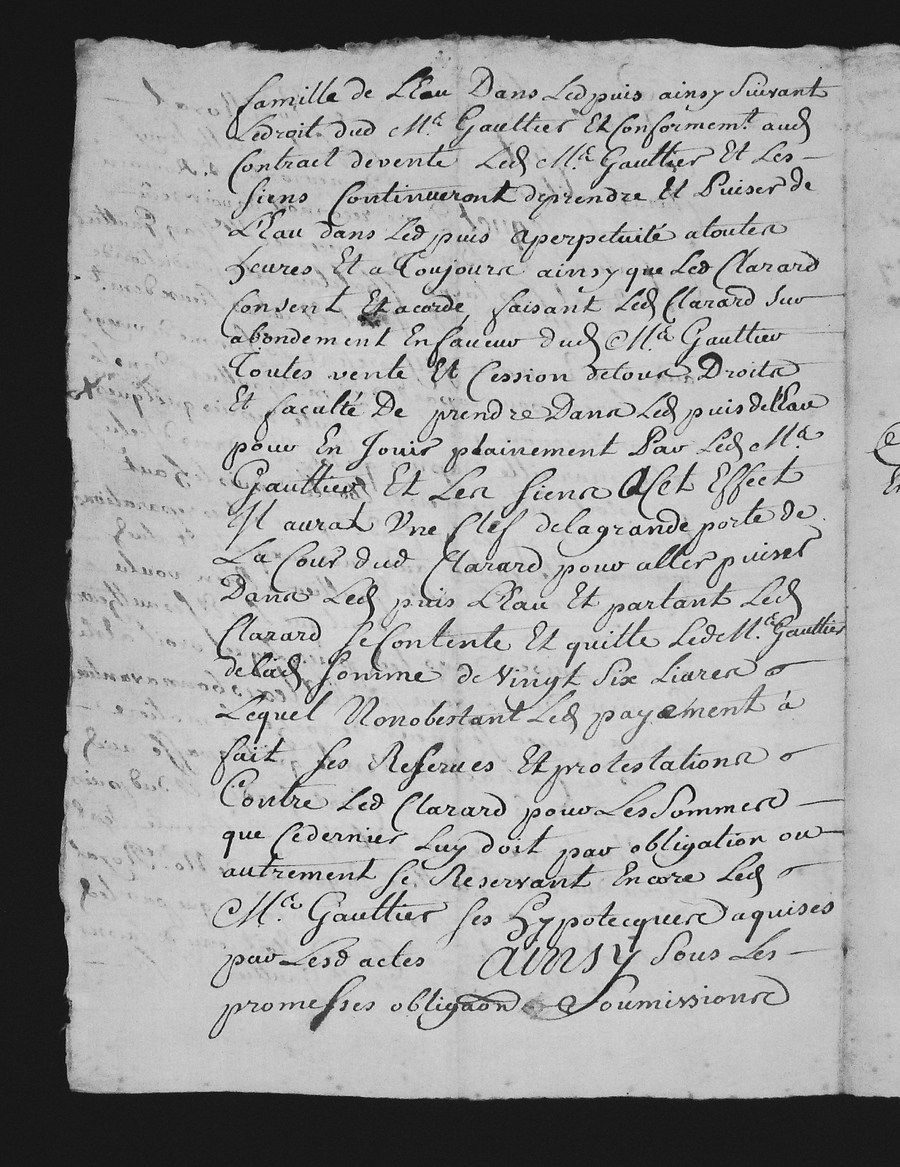 famille de LEau Dans Led puis ainsy Suivant
Ledroit dud Mᵉ Gaultier Et Conformemt. aud
Contract devente Led Mᵉ Gaultier Et Les
siens Continueront deprendre Et Puiser de
LEau dans Led puis aperpetuité atoutes
heures Et a Toujours ainsy que Led Clarard
Consent Et acorde, faisant Led Clarard sur
abondement En faveur dud Mᵉ Gaultier
Toutes vente Et Cession detous Droits
Et faculté De prendre Dans Led puis de lEau
pour En Jouir plainement Par Led Mᵉ
Gaultier Et Les siens ACet Effect
Il aurat Une Clef delagrande porte de
La Cour dud Clarard pour aller puiser
Dans Led puis LEau Et partant Led
Clarard se Contente Et quitte Led Mᵉ Gaultier
delad somme de Vingt Six Livres
Lequel Nonobestant Led payement à
fait ses Reserves Et protestations
Contre Led Clarard pour Les Sommes
que Cedernier Luy doit par obligation ou
autrement se Reservant Encore Led
Mᵉ Gaultier ses hypotecques aquises
par Lesd actes Ainsy Sous Les
promesses obligaons Soumissions